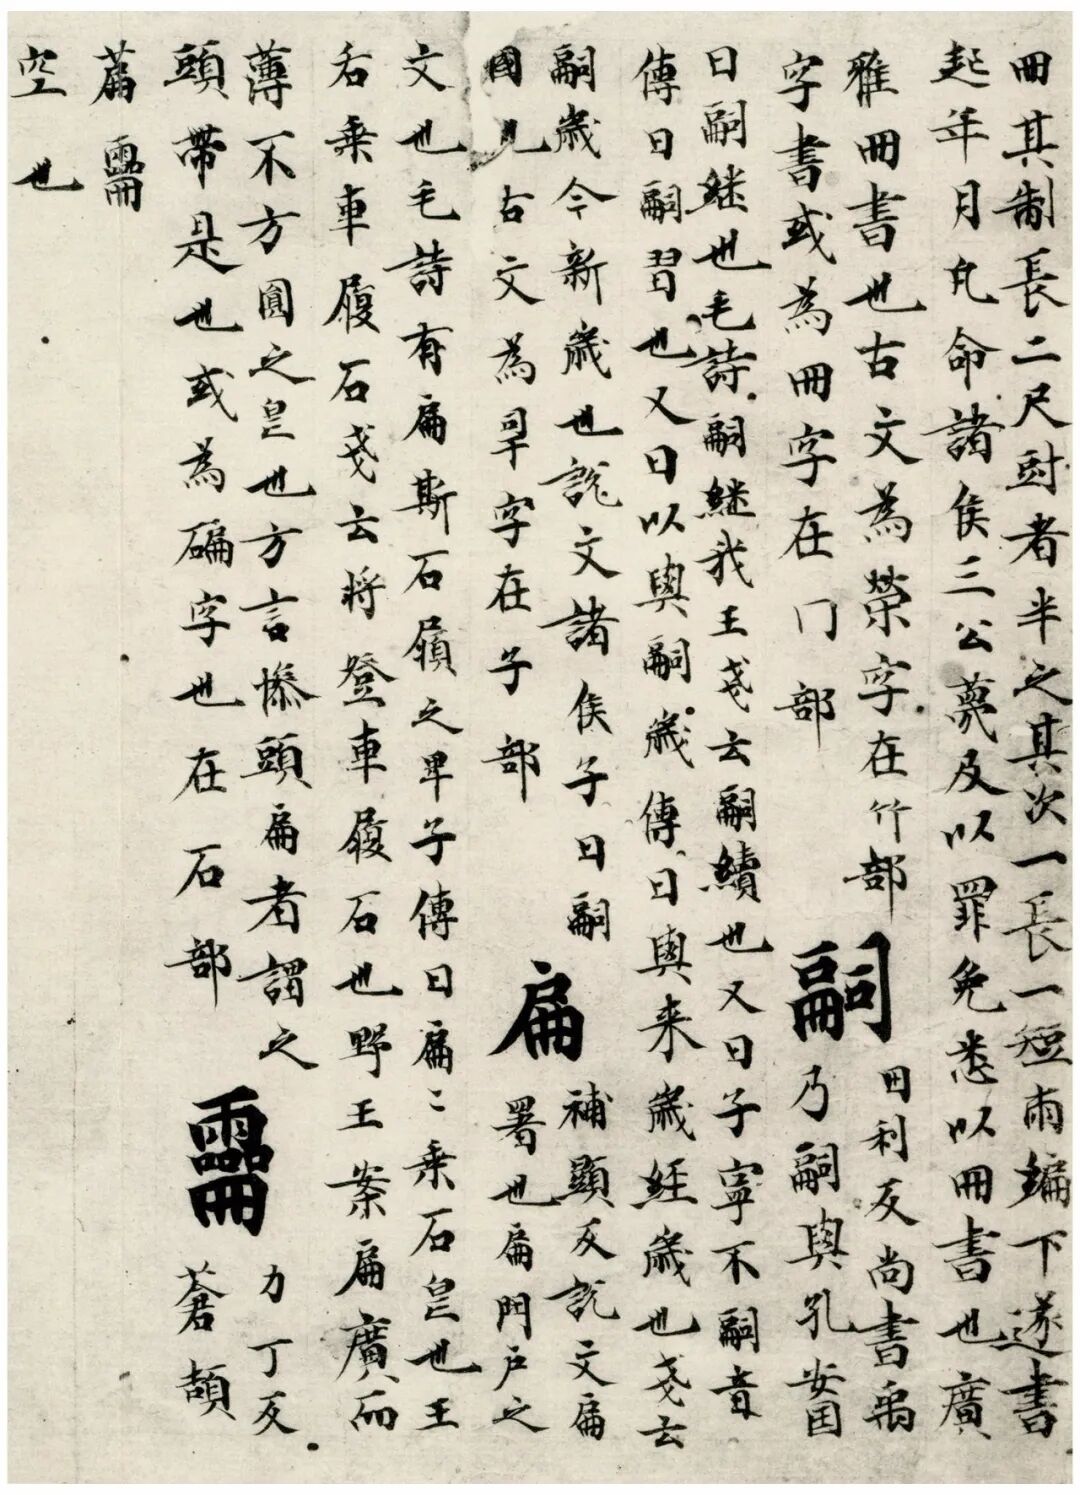 冊其制長二尺㪷者半之其次一長一短兩編下遂書
起年月凡命諸侯三公薨及以罪免悉以冊書也廣
雅冊書也古文為䇲字在竹部
字書或為冊字在门部
嗣
囬利反尚書禹
乃嗣興孔安囯
曰嗣継也毛詩嗣継我王戔云嗣續也又曰子寜不嗣音
傳曰嗣習也又曰以興嗣歳傳曰興来歳経歳也戔云
嗣歳今新歳也說文諸侯子曰嗣
國也古文為㝅字在子部
扁
補顯反說文扁
署也扁門戶之
文也毛詩有扁斯石履之卑子傳曰扁〻乗石皃也王
右乗車履石戔云將登車履石也野王案扁廣而
薄不方圓之皃也方言幓頭扁者謂之
頭帶是也或為碥字也在石部
𠕲
力丁反
蒼頡
萹𠕲
空也